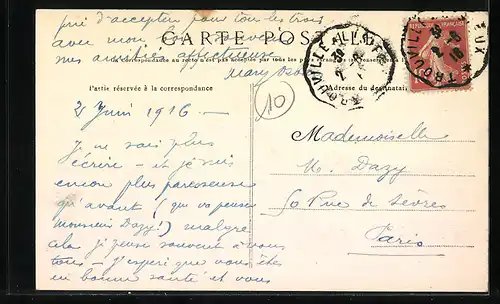 prie d'accepter pour tous les trois
avec mon
mes amitiés affectueuses
Mary
CARTE POSTALE
La correspondance au recto n'est pas acceptée par tous les pays
Partie réservée à la correspondance
Adresse du destinataire
10
TROUVILLE
REPUBLIQUE FRANÇAISE
TROUVILLE
2 Juin 1916 -
Je ne sais plus
écrire - et je suis
encore plus paresseuse
qu'avant (que va penser
Monsieur Dazy!) malgré
cela je pense souvent à vous
tous - J'espère que vous êtes
en bonne santé et vous
Mademoiselle
M. Dazy
50 Rue de Sèvres
Paris